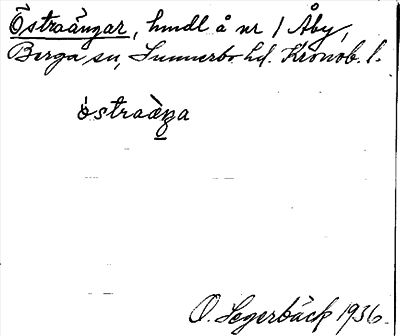 Östraängar, hmdl å nr 1 Åby,
Berga sn, Sunnerbo hd. Kronob. l.
östraäŋa
O. Segerbäck 1936.